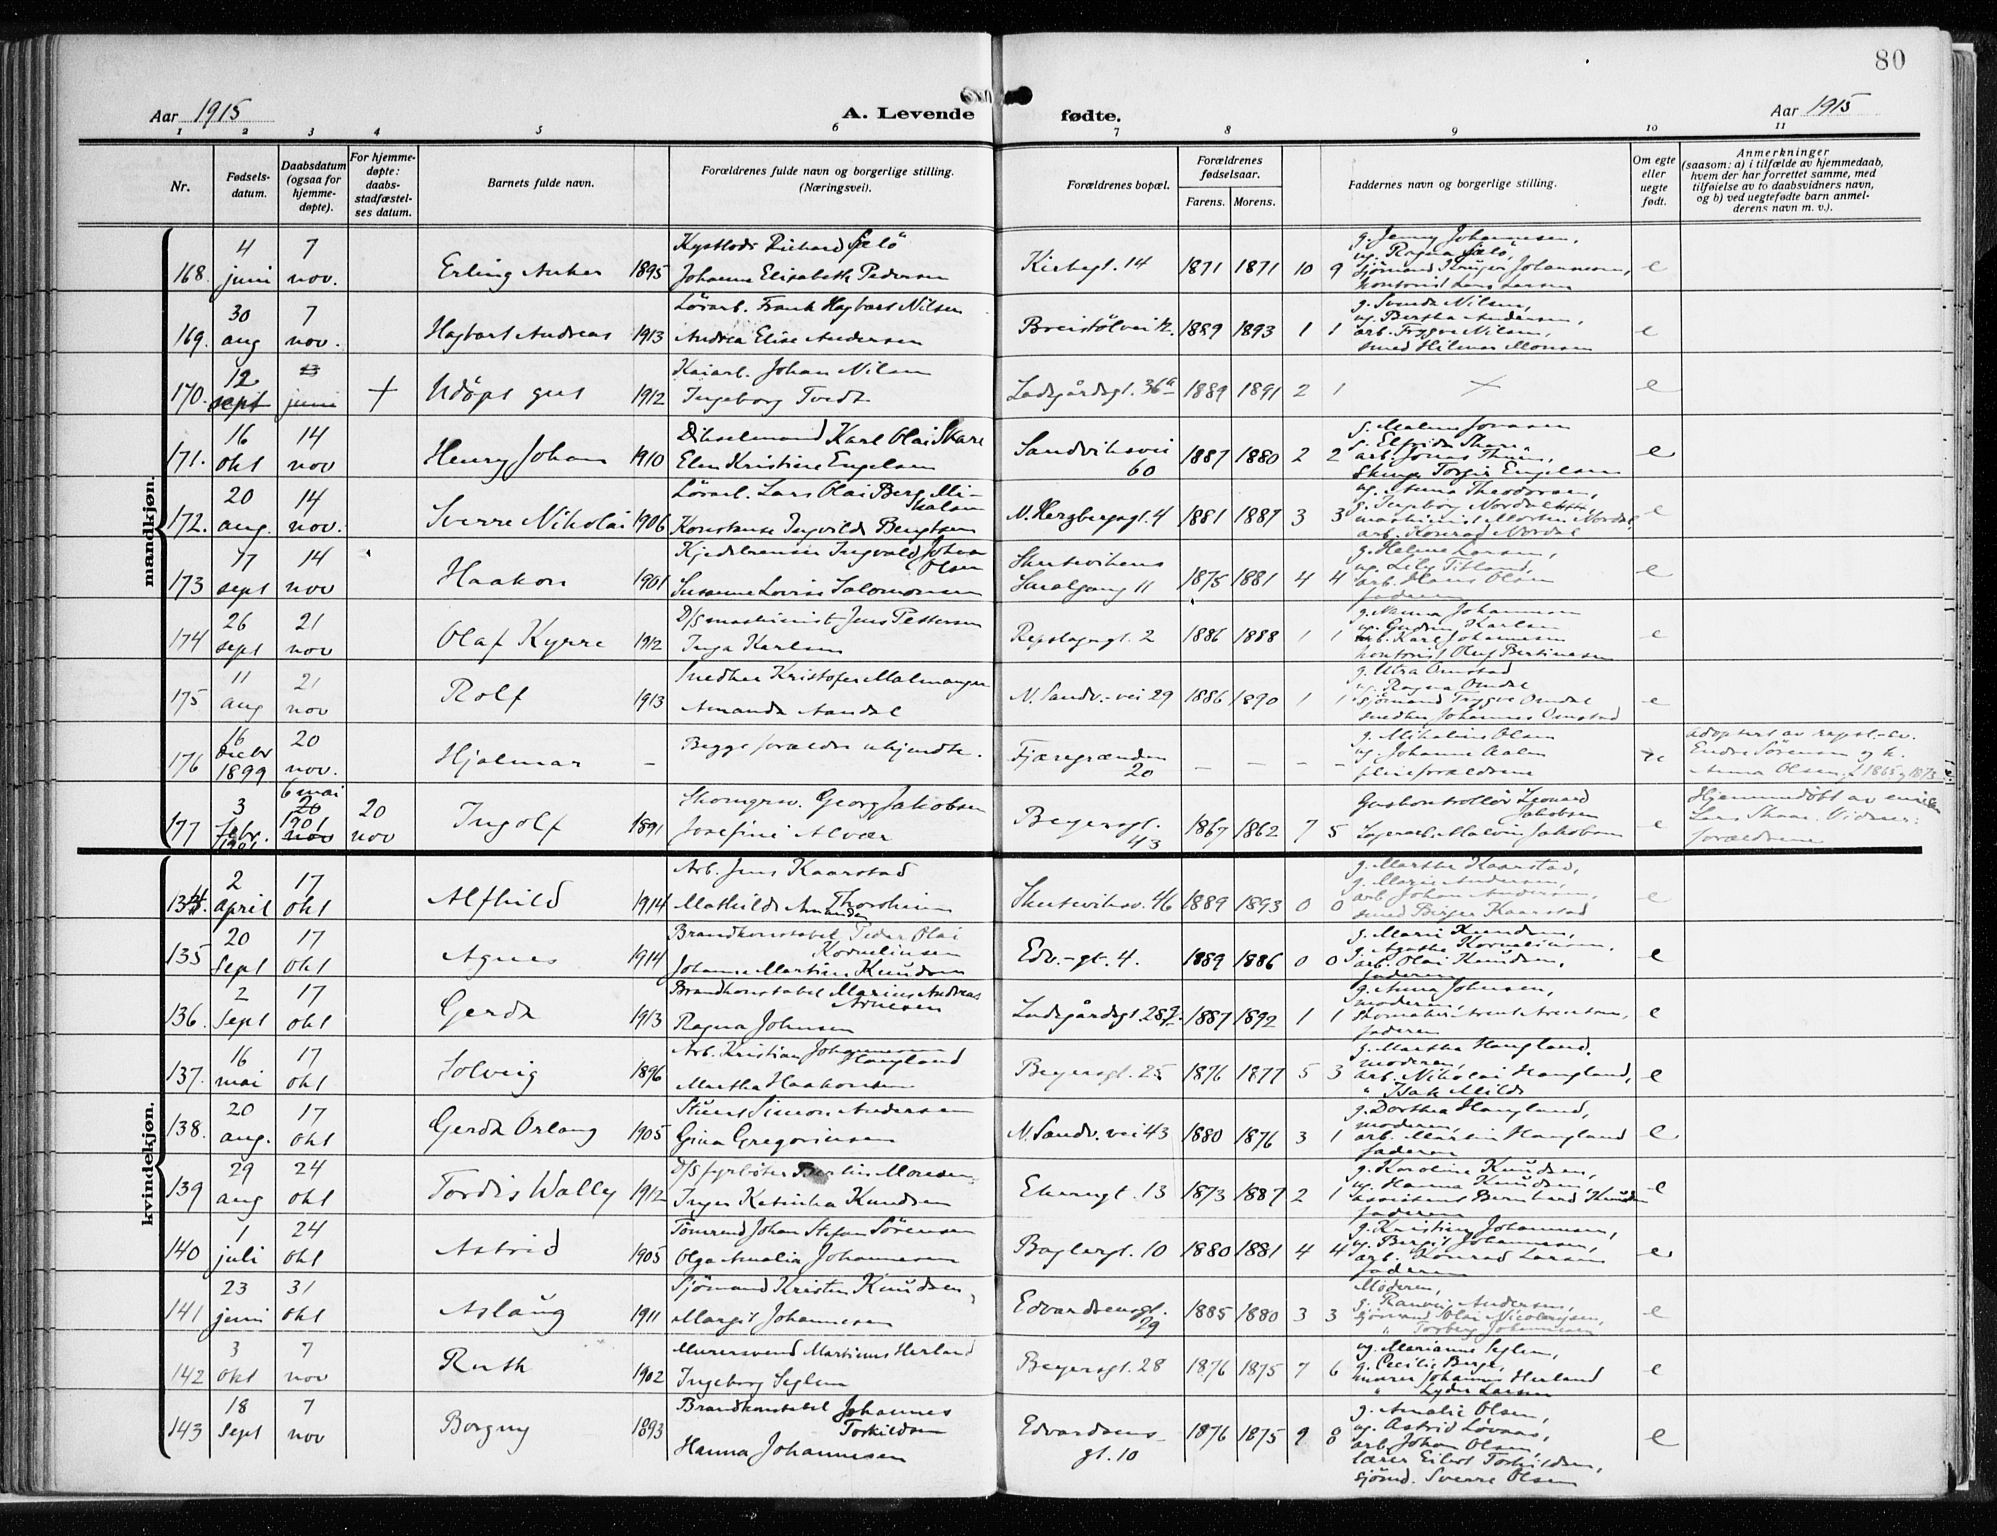 80
Aar 1915
A. Levende fødte.
Aar 1915
1 2 3 4 5 6 7 8 9 10 11
Nr.
Fødsels-
datum.
Daabsdatum
(ogsaa for
hjemme-
døpte).
For hjemme-
døpte:
daabs-
stadfæstel-
ses datum.
Barnets fulde navn.
Forældrenes fulde navn og borgerlige stilling.
(Næringsvei).
Forældrenes bopæl.
Forældrenes
fødselsaar.
Farens. Morens.
Faddernes navn og borgerlige stilling.
Om egte
eller
uegte
født.
Anmerkninger
(saasom: a) i tilfælde av hjemmedaab,
hvem der har forrettet samme, med
tilføielse av to daabsvidners navn,
og b) ved uegtefødte barn anmel-
derens navn m. v.).
mandkjøn.
168. 4 juni 7 nov. Erling Anker 1895
Richard
Johanne Elisabeth Pedersen
Kirkegt. 14 1871 1871 10 9
g. Jenny Johannesen,
ug. Ragna
sjømand Krüger Johannesen,
kontorist Lars Larsen
e
169. 30 aug 7 nov. Hagbart Andreas 1913
Løsarb. Frank Hagbart Nilsen
Andrea Elise Andersen
Breistølvei 1889 1893 1 1
g. Svenda Nilsen,
ug. Bertha Andersen,
arb. Trygve Nilsen,
smed Hilmar Monsen
e
170. 12 sept juni + Udøpt gut 1912
Kaiarb. Johan Nilsen
Ingeborg Tvedt
Ladegårdsgt. 36a 1889 1891 2 1 × e
171. 16 okt 14 nov Henry Johan 1910
Karl Olai Skare
Elen Kristine Engelsen
Sandviksvei
60 1887 1880 2 2
g. Malene
g. Elfrida Skare,
arb. Jonas
Torgeir Engelsen
e
172. 20 aug. 14 nov. Sverre Nikolai 1906
Løsarb. Lars Olai Berg Mi-
kalsen
Konstanse Ingvilda Bengtsen
N. Herzbergsgt. 4 1881 1887 3 3
ug. Anna Theodorsen,
g. Ingeborg Nordal
maskinist Morten Nordal,
arb. Konrad Nordal
e
173 17 sept 14 nov Haakon 1901
Ingvald Johan
Olsen
Susanne Lovise Salomonsen
Skutevikens
Smalgang 11 1875 1881 4 4
g. Helene Larsen,
ug. Lily Titland,
arb. Hans Olsen
faderen
e
174 26 sept 21 nov Olaf Kyrre 1912
D/smaskinist Jens Pettersen
Inga Karlsen
Repslagergt. 2 1886 1888 1 1
g. Nanna Johannesen
ug. Gudrun Karlsen
arb. Karl Johannesen
kontorist Oluf Bertinesen
e
175 11 aug 21 nov Rolf 1913
Snedker Kristofer Malmanger
Amanda Aandal
N. Sandv.-vei 29 1886 1890 1 1
g.
ug. Ragna
sjømand Trygve
snedker Johannes
e
176 16 1899 20 nov. Hjalmar –
Begge forældre ukjendte.
Fjæregrænden
20 – – – –
g. Mikaline Olsen
ug. Johanne
pleieforældrene
adoptert av
Endre Sørensen og h.
Anna Olsen, f. 1865 og 1873
177 3 febr. 1901 6 mai 20 1901 nov 20 nov Ingolf 1891
Georg Jakobsen
Josefine Alvær
Beyersgt.
43 1867 1862 7 5
Gaskontrollør Leonard
Jakobsen
Lagerarb. Malvin Jakobsen
e
Hjemmedøbt av
Lars Skaar. Vidner:
forældrene
kvindekjøn.
134. 2 april 17 okt Alfhild 1914
Arb. Jens Kaarstad
Mathilde Amanda
Skuteviksv. 46 1889 1893 0 0
g. Marthe Kaarstad,
g. Marie Andersen,
arb Johan Andersen,
smed Birger Kaarstad
e
135 20 sept 17 okt Agnes 1914
Brandkonstabel Peder Olai
Kornelinsen
Johanne Martine Knudsen
Edv.-gt. 4. 1889 1886 0 0
g. Marie Knudsen,
g. Agathe Kornelinsen,
arb. Olai Knudsen,
faderen
e
136. 2 sept 17 okt Gerda 1913
Brandkonstabel Marius Andreas
Arnesen
Ragna Johnsen
Ladegårdsgt. 28 1887 1892 1 1
g. Anna Johnsen,
moderen,
faderen
e
137. 16 mai 17 okt Solveig 1896
Arb. Kristian Johannesen
Haugland
Martha Haakonsen
Beyersgt. 25 1876 1877 5 3
g. Martha Haugland,
moderen,
arb. Nikolai Haugland,
" Isak Milde
e
138. 20 aug. 17 okt Gerda Orlaug 1905
Simon Andersen
Gina Gregoriusen
N. Sandv. vei 43 1880 1876 3 1
g. Dorthea Haugland,
moderen,
arb. Martin Haugland
faderen
e
139 29 aug 24 okt Tordis Wally 1912
D/sfyrbøter Monsen,
Inger Katinka Knudsen
1873 1887 2 1
g. Karoline Knudsen,
ug. Hanna Knudsen,
assistent Bernhard Knudsen
faderen
e
140 1 juli 24 okt Astrid 1905
Johan Stefan Sørensen
Olga Amalia Johannesen
Baglergt. 10 1880 1881 4 4
g. Kristine Johannesen,
ug. Bergit Johannesen,
arb. Konrad Larsen
faderen
e
141 23 juni 31 okt Aslaug 1911
Sjømand Kristen Knudsen,
Margit Johannesen
Edvardsensgt.
29 1885 1880 3 3
Moderen,
g. Ranvei Andersen,
sjømand Olai Nicolaysen,
" Torberg Johannesen
e
142 3 okt 7 nov Ruth 1902
Murersvend Martinus Herland
Ingeborg Seglem
Beyersgt. 28 1876 1875 7 6
ug. Marianne Seglem,
g. Cecilie Berge,
murer Johannes Herland
" Lyder Larsen
e
143 18 sept 7 nov Borgny 1893
Brandkonstabel Johannes
Torkildsen
Hanna Johannesen
Edvardsens-
gt. 10 1876 1875 9 8
g. Amalie Olsen,
ug. Astrid Løvaas,
arb. Johan Olsen,
lærer Eilert Torkildsen,
sjømd. Sverre Olsen
e